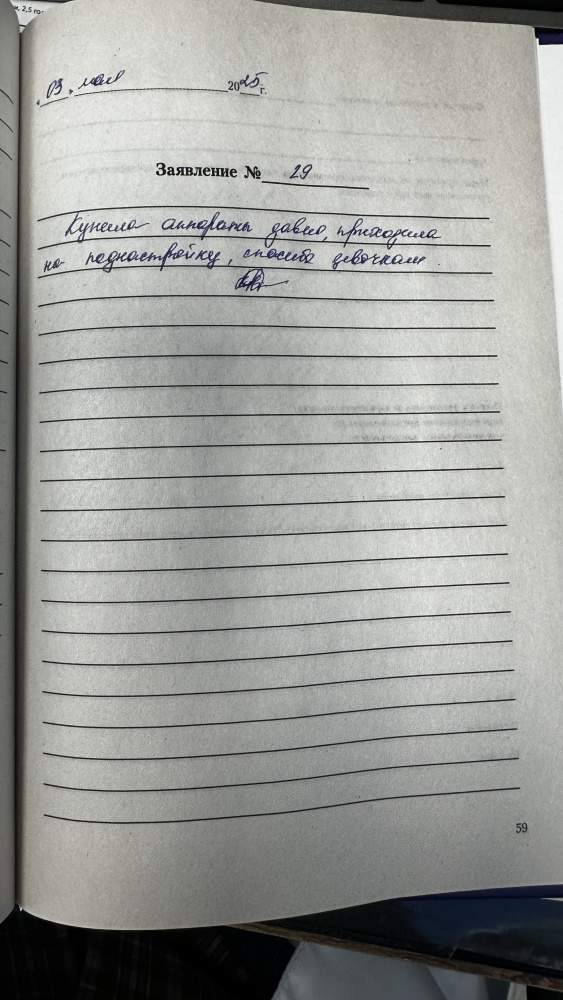 м, 2,5 го
„03" мая 2025 г.
Заявление № 29
Купила аппараты давно, приходила
на поднастройку, спасибо девочкам.
59